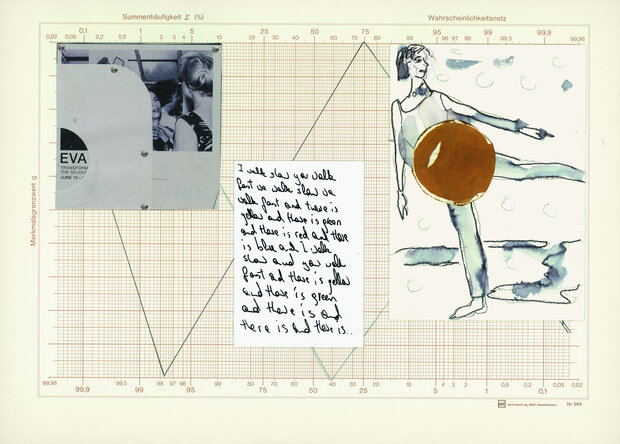 Summenhäufigkeit Σ (%)
Wahrscheinlichkeitsnetz
0,02 0,1 0,5 1 5 10 25 50 75 90 95 99 99,9 99,98
0,05 0,2 2 3 4 15 20 30 40 60 70 80 85 96 97 98 99,5
Merkmalsgrenzwert g
EVA
TRANSFORM
THE SOJOU
JUNE 12
I walk slow you walk
fast we walk slow we
walk fast and there is
yellow and there is green
and there is red and there
is blue and I walk
slow and you walk
fast and there is yellow
and there is green
and there is and
there is and there is..
99,98 99,9 99,5 99 98 97 96 95 90 75 50 25 10 5 4 3 2 1 0,5 0,2 0,1 0,02
Nr. 664